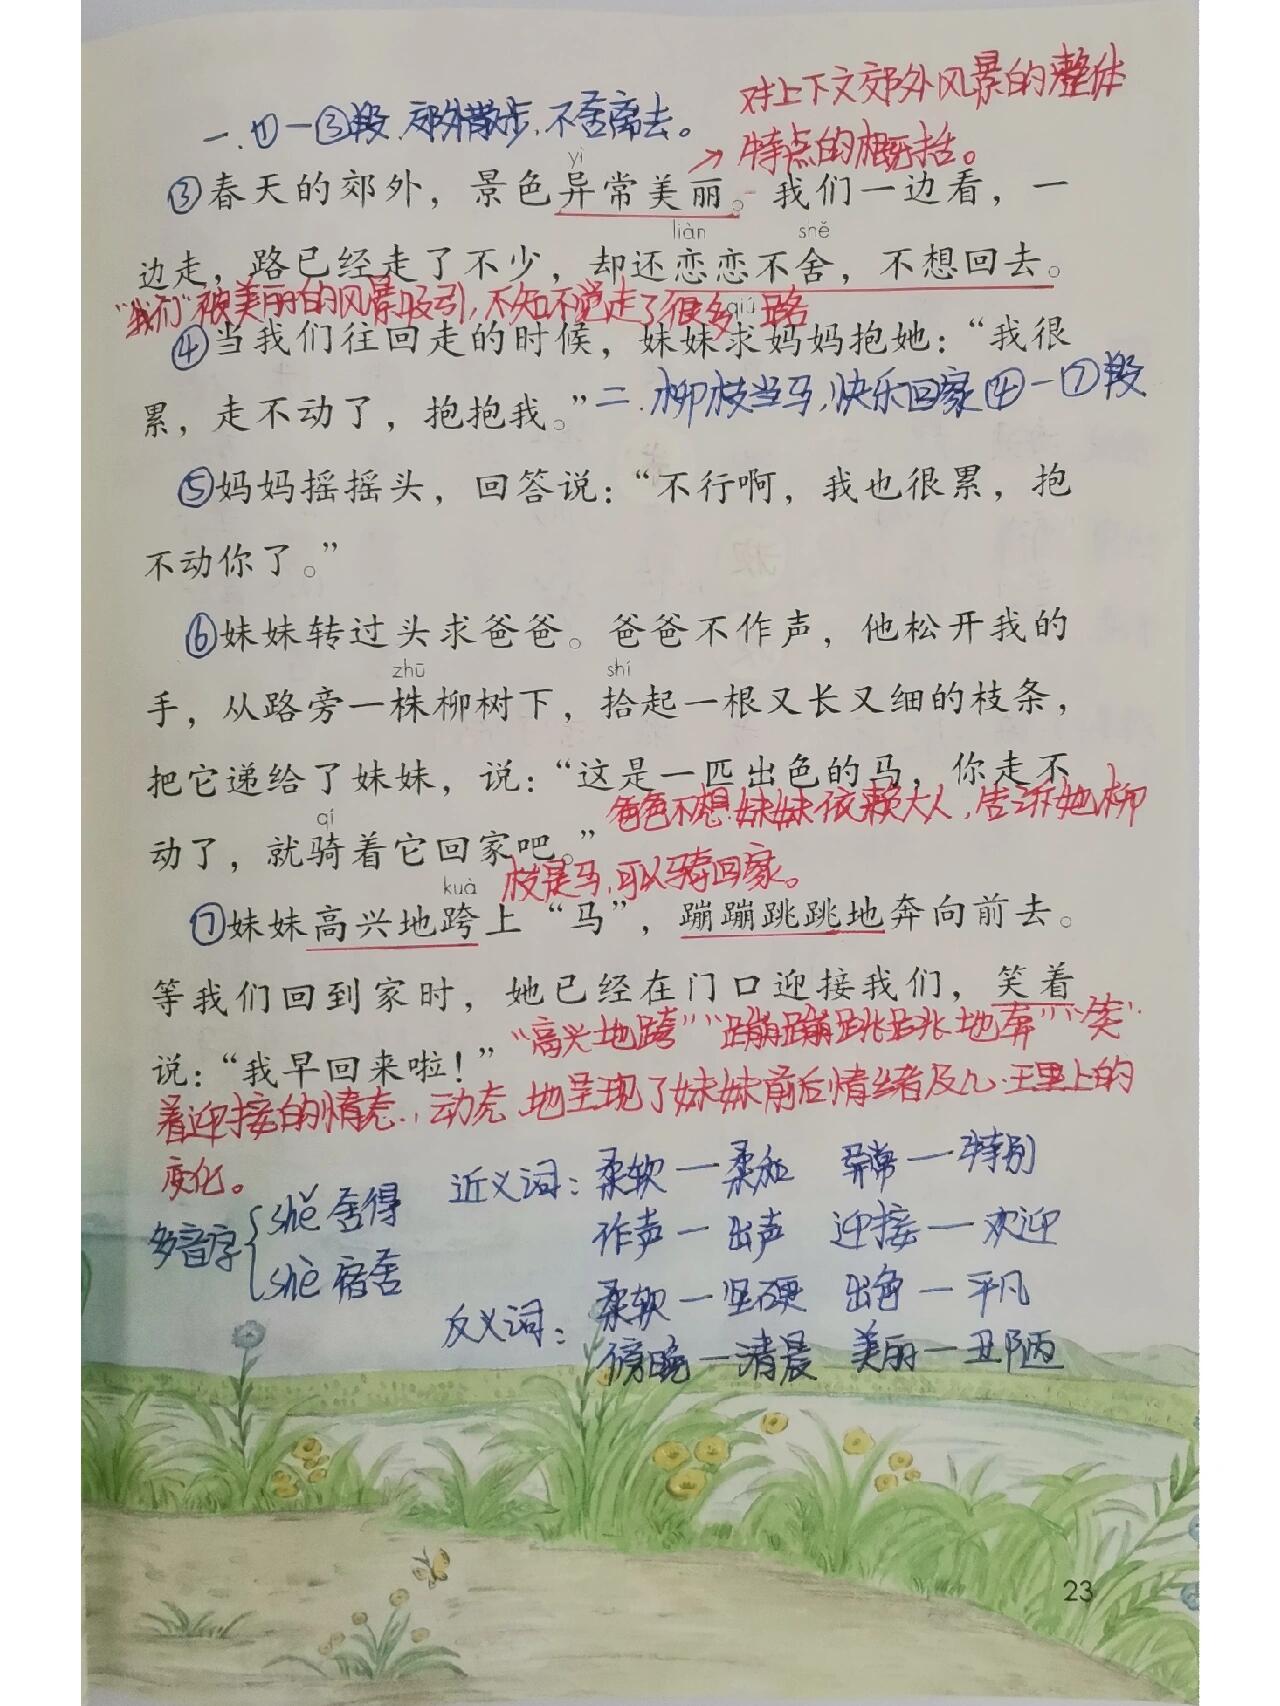 对上下文郊外风景的整体
一.①—③段.郊外散步,不舍离去。
特点的概括。
yì
③春天的郊外，景色异常美丽。我们一边看，一
liàn shě
边走，路已经走了不少，却还恋恋不舍，不想回去。
“我们”被美丽的风景吸引,不知不觉走了很多路
qiú
④当我们往回走的时候，妹妹求妈妈抱她：“我很
二.柳枝当马,快乐回家④—⑦段
累，走不动了，抱抱我。”
⑤妈妈摇摇头，回答说：“不行啊，我也很累，抱
不动你了。”
⑥妹妹转过头求爸爸。爸爸不作声，他松开我的
zhū shí
手，从路旁一株柳树下，拾起一根又长又细的枝条，
把它递给了妹妹，说：“这是一匹出色的马，你走不
爸爸不想妹妹依赖大人,告诉她柳
qí
动了，就骑着它回家吧。”
枝是马,可以骑回家。
kuà
⑦妹妹高兴地跨上“马”，蹦蹦跳跳地奔向前去。
等我们回到家时，她已经在门口迎接我们，笑着
“高兴地跨”“蹦蹦跳跳地奔”“笑”
说：“我早回来啦！”
着迎接的情态.,动态地呈现了妹妹前后情绪及心理上的
变化。
近义词：柔软—柔和 异常—特别
多音字{shě舍得
shè宿舍
作声—出声 迎接—欢迎
反义词：柔软—坚硬 出色—平凡
傍晚—清晨 美丽—丑陋
23